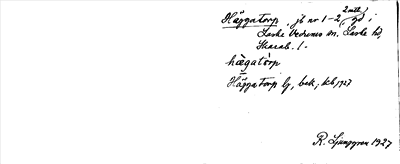 2 mtl
Häggatorp, jb nr 1-2, gd i
Larske Vedums sn, Laske hd,
Skarab. l.
hægatòrp
Häggatorp lj, bek, kb, 1927
R. Ljunggren 1927